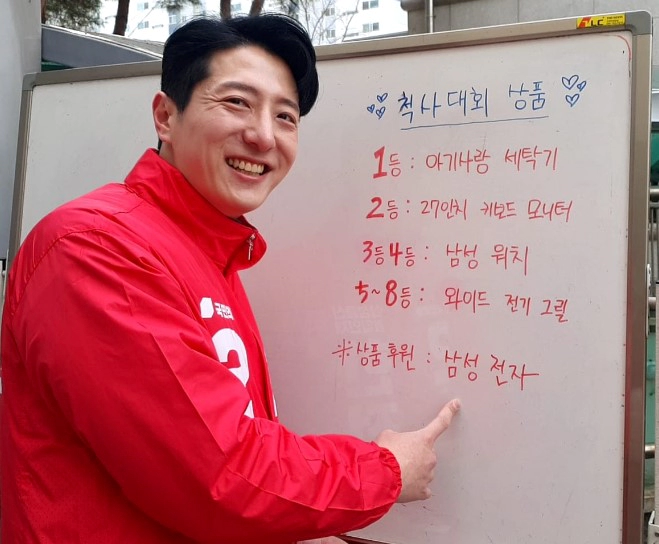 척사대회 상품
1등 : 아기사랑 세탁기
2등 : 27인치 키보드 모니터
3등4등 : 남성 워치
5~8등 : 와이드 전기 그릴
※상품후원 : 남성 전자
2